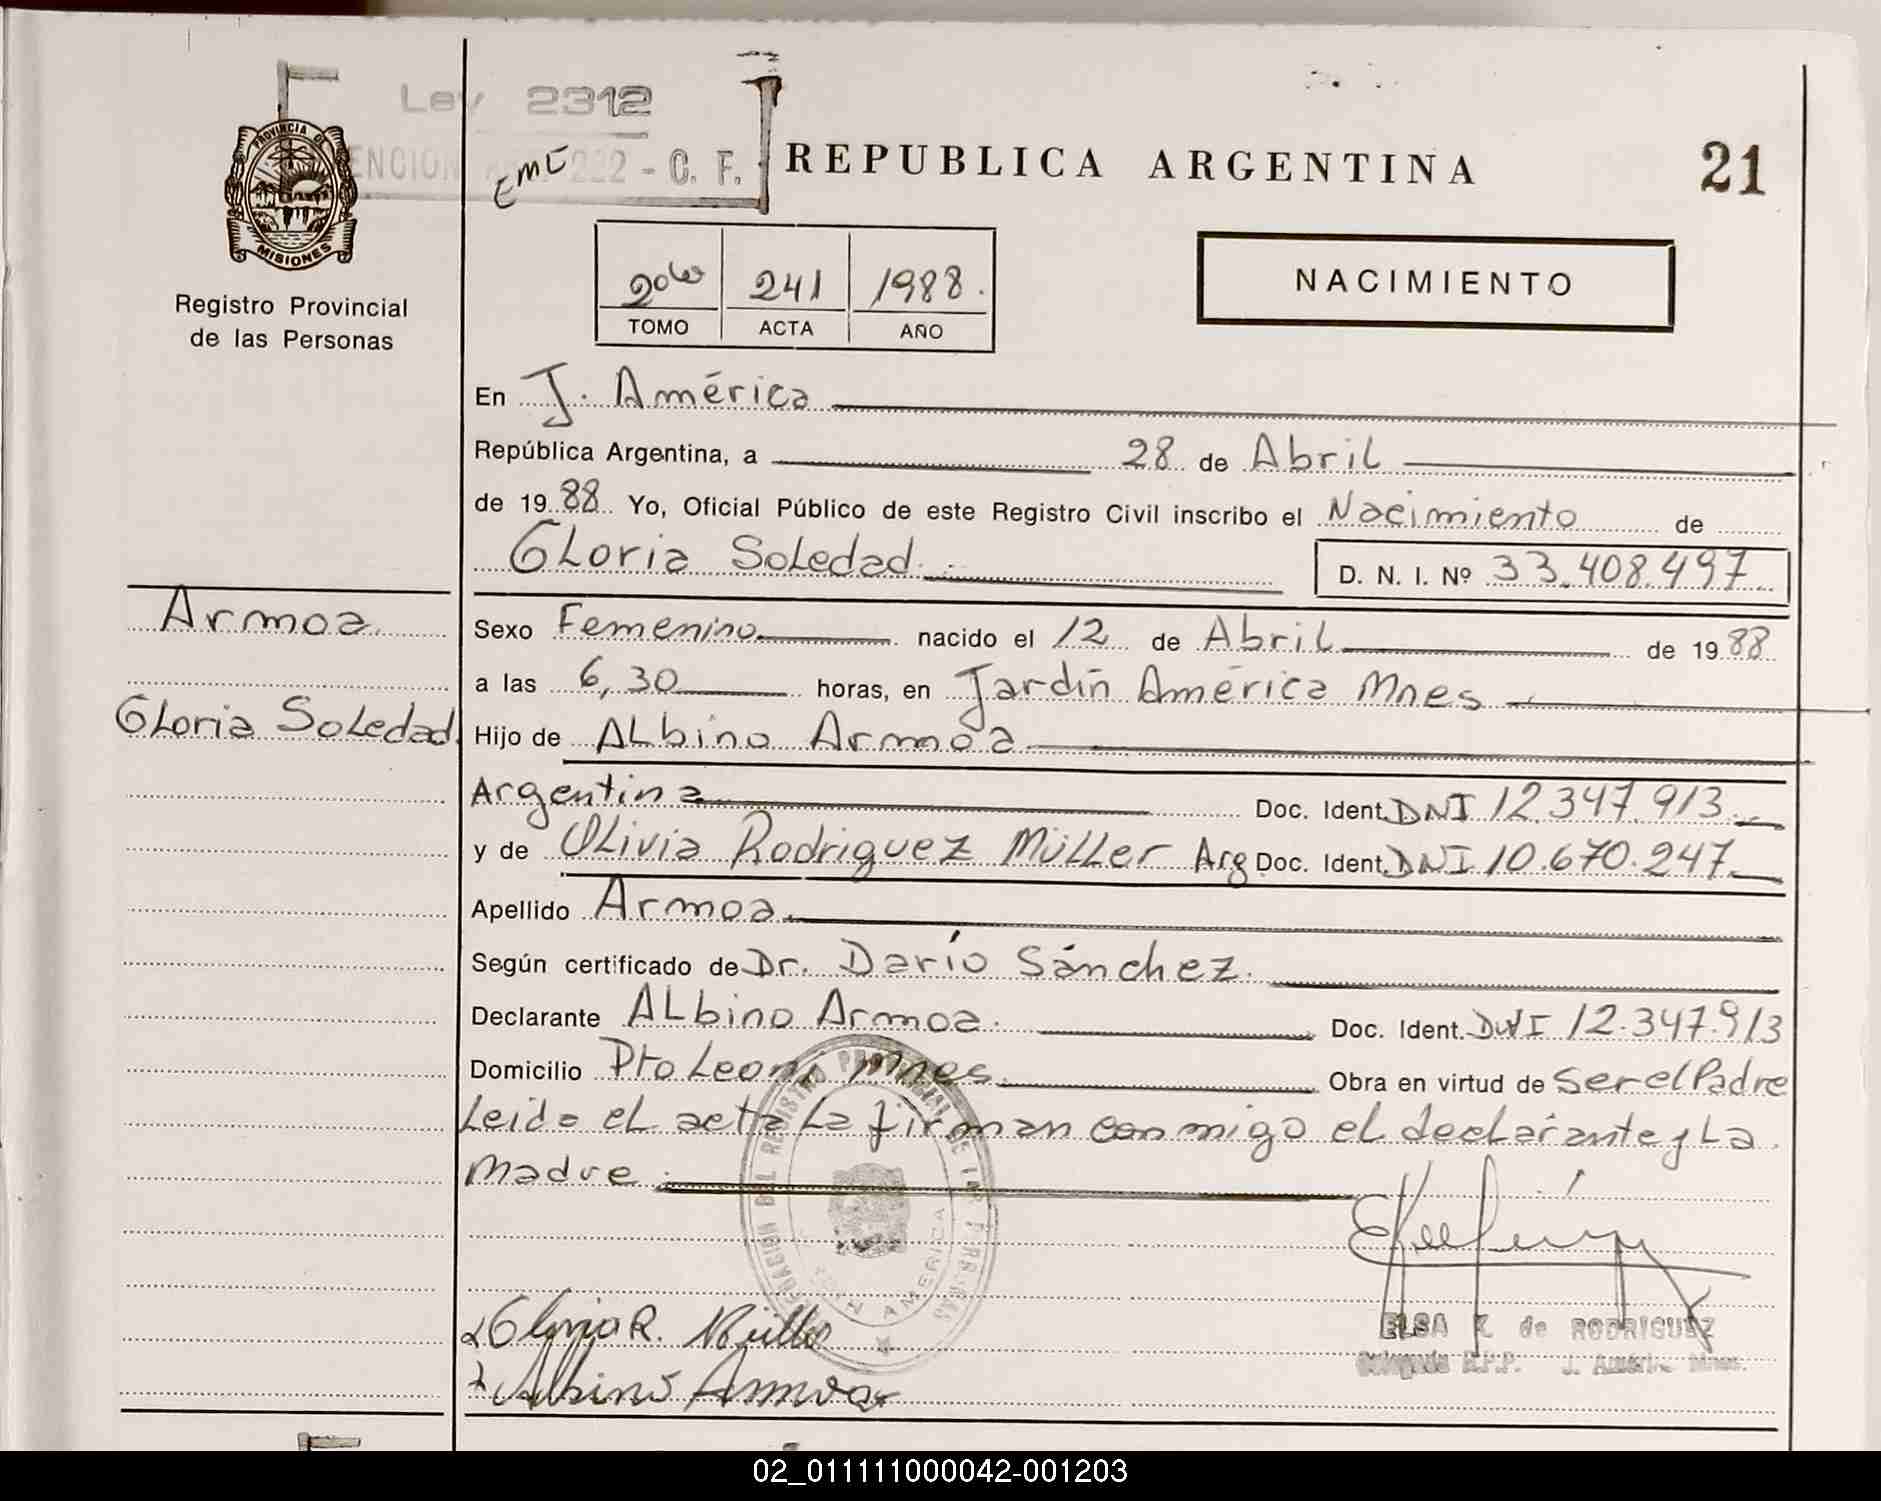 Ley 2312
ENCION 222 - C. F.
EME
REPUBLICA ARGENTINA
21
PROVINCIA DE
MISIONES
Registro Provincial
de las Personas
2do 241 1988.
TOMO ACTA AÑO
NACIMIENTO
En J. América
República Argentina, a 28 de Abril
de 1988 Yo, Oficial Público de este Registro Civil inscribo el Nacimiento de
Gloria Soledad D. N. I. Nº 33.408.497
Armoa
Gloria Soledad
Sexo Femenino nacido el 12 de Abril de 1988
a las 6,30 horas, en Jardín América Mnes
Hijo de Albino Armoa
Argentina Doc. Ident. DNI 12.347.913
y de Olivia Rodriguez Müller Arg Doc. Ident. DNI 10.670.247
Apellido Armoa
Según certificado de Dr. Darío Sánchez.
Declarante Albino Armoa. Doc. Ident. DNI 12.347.913
Domicilio Pto Leoni Mnes Obra en virtud de ser el Padre
Leida el acta la firman conmigo el declarante y la
madre
ELSA K. de RODRIGUEZ
Delegada R.P.P. J. América Mnes.
Albino Armoa
02_011111000042-001203